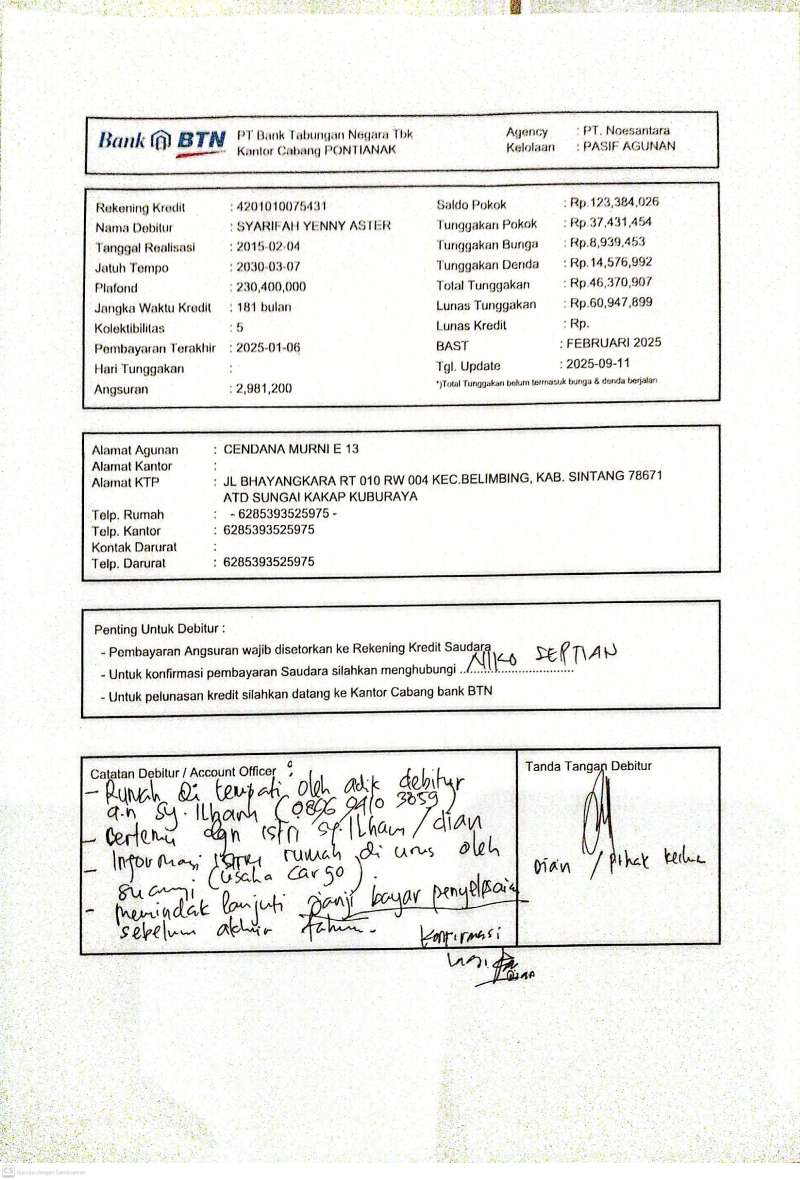 Bank BTN PT Bank Tabungan Negara Tbk
Kantor Cabang PONTIANAK
Agency : PT. Noesantara
Kelolaan : PASIF AGUNAN
Rekening Kredit : 4201010075431
Nama Debitur : SYARIFAH YENNY ASTER
Tanggal Realisasi : 2015-02-04
Jatuh Tempo : 2030-03-07
Plafond : 230,400,000
Jangka Waktu Kredit : 181 bulan
Kolektibilitas : 5
Pembayaran Terakhir : 2025-01-06
Hari Tunggakan :
Angsuran : 2,981,200
Saldo Pokok : Rp.123,384,026
Tunggakan Pokok : Rp.37,431,454
Tunggakan Bunga : Rp.8,939,453
Tunggakan Denda : Rp.14,576,992
Total Tunggakan : Rp.46,370,907
Lunas Tunggakan : Rp.60,947,899
Lunas Kredit : Rp.
BAST : FEBRUARI 2025
Tgl. Update : 2025-09-11
*)Total Tunggakan belum termasuk bunga & denda berjalan
Alamat Agunan : CENDANA MURNI E 13
Alamat Kantor :
Alamat KTP : JL BHAYANGKARA RT 010 RW 004 KEC.BELIMBING, KAB. SINTANG 78671
ATD SUNGAI KAKAP KUBURAYA
Telp. Rumah : - 6285393525975 -
Telp. Kantor : 6285393525975
Kontak Darurat :
Telp. Darurat : 6285393525975
Penting Untuk Debitur :
- Pembayaran Angsuran wajib disetorkan ke Rekening Kredit Saudara
- Untuk konfirmasi pembayaran Saudara silahkan menghubungi ..NIKO SEPTIAN
- Untuk pelunasan kredit silahkan datang ke Kantor Cabang bank BTN
Catatan Debitur / Account Officer :
- Rumah di tempati oleh adik debitur
a.n sy. Ilham (0896 9910 3859)
- Bertemu dgn istri sy. Ilham / dian
- Informasi istri rumah di urus oleh
suami (usaha cargo)
- menindak lanjuti janji bayar penyelesaia
sebelum akhir tahun.
Konfirmasi
lagi
Tanda Tangan Debitur
Dian / Pihak kedua
CS Dipindai dengan CamScanner